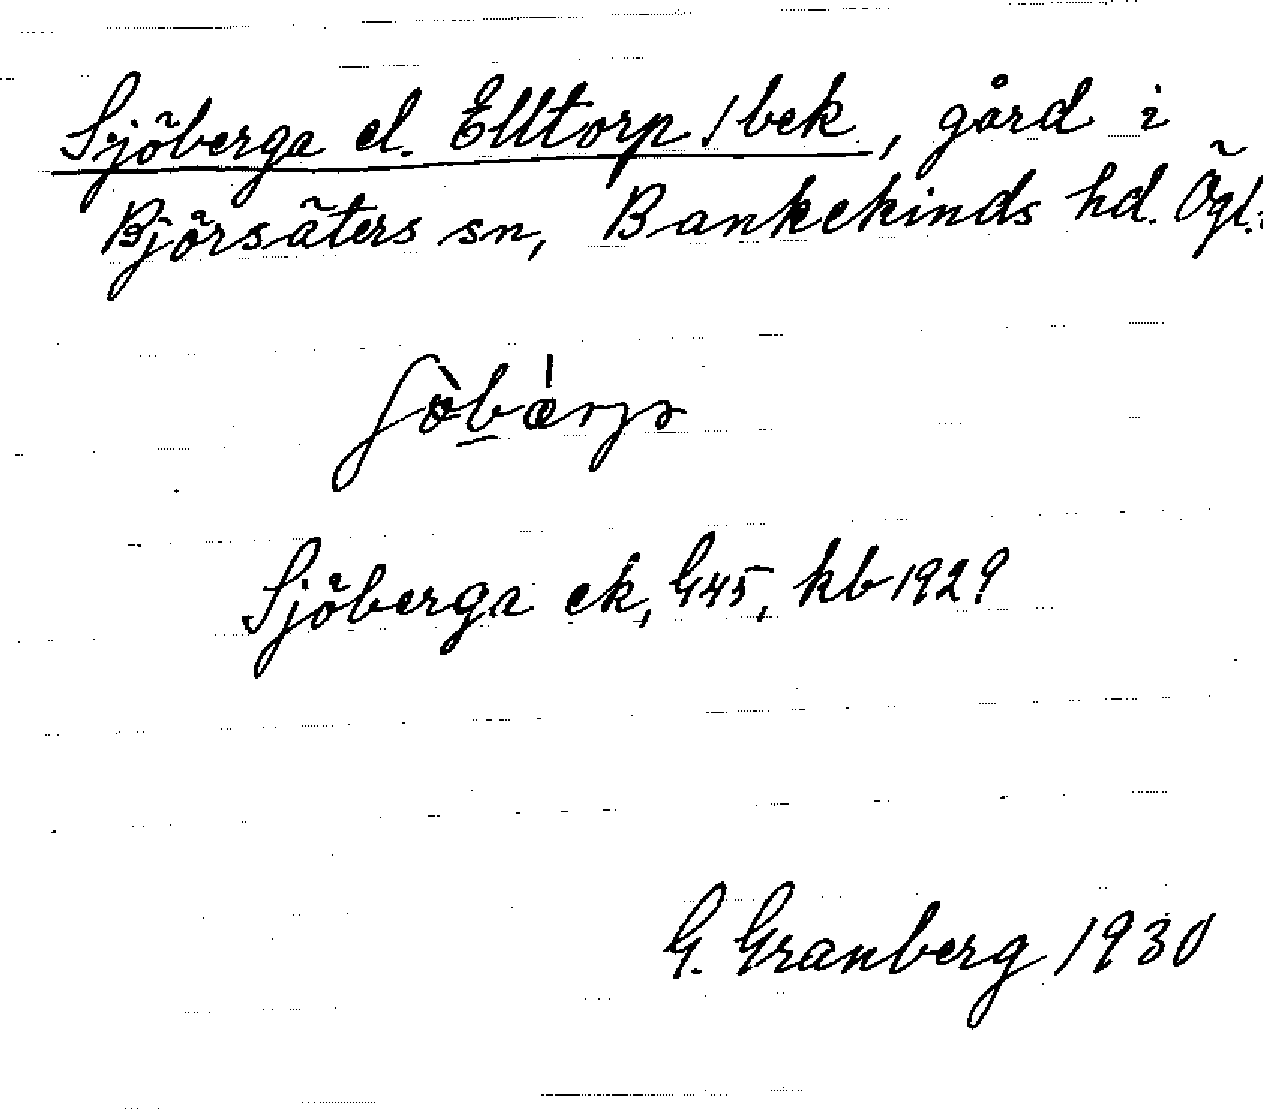 Sjöberga el. Elltorp 1 bek, gård i
Björsäters sn, Bankekinds hd. Ögl.
Sjöberga ek, G45, kb 1929
G. Granberg 1930